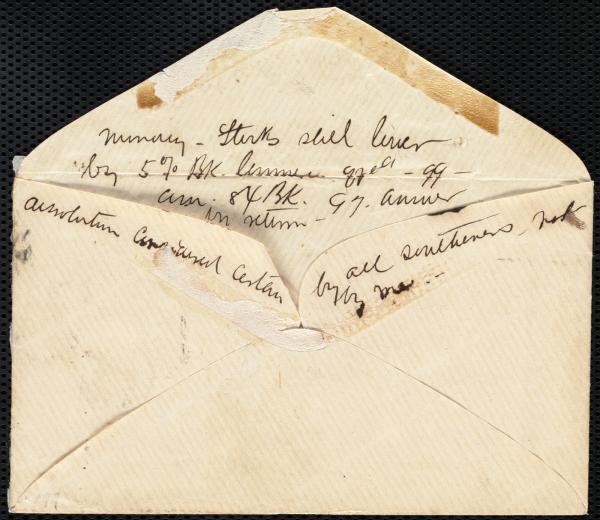 Monday - Stocks still lower
by 5% BK. Commerce - 99 -
am. 84 BK. 97. answer
in return -
dissolution considered certain
by all southerners - not
by me -